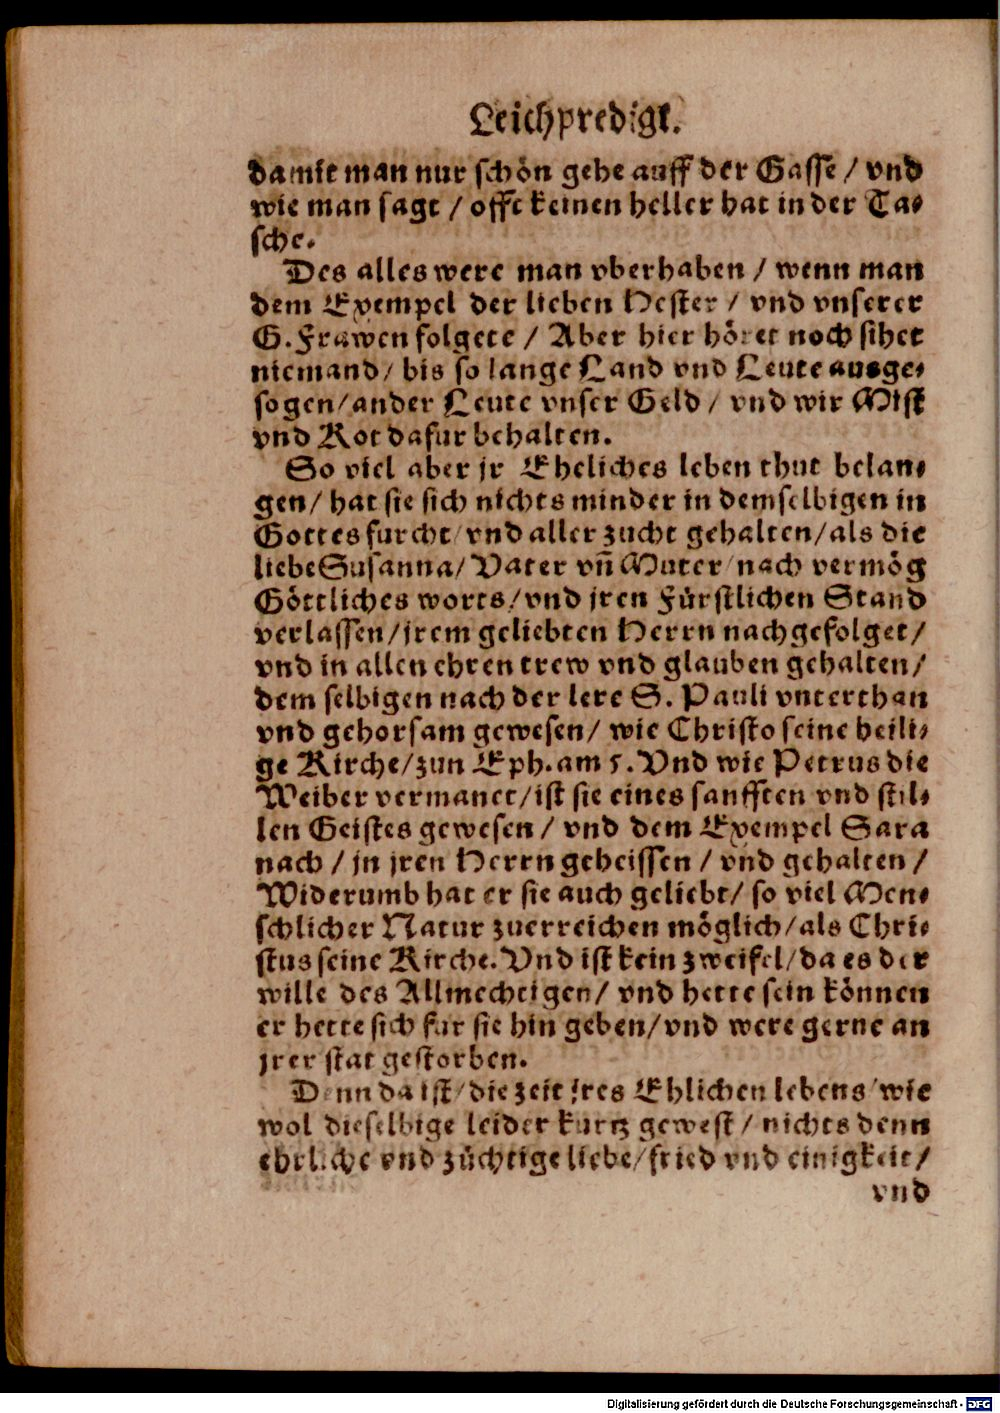 Leichpredigt.
damit man nur schön gehe auff der Gasse / vnd
wie man sagt / offt keinen heller hat in der Ta⸗
sche.
Des alles were man vberhaben / wenn man
dem Exempel der lieben Hester / vnd vnserer
G. Frawen folgete / Aber hier höret noch sihet
niemand / bis so lange Land vnd Leute ausge⸗
sogen / ander Leute vnser Geld / vnd wir Mist
vnd Kot dafur behalten.
So viel aber jr Eheliches leben thut belan⸗
gen / hat sie sich nichts minder in demselbigen in
Gottes furcht / vnd aller zucht gehalten / als die
liebe Susanna / Vater vñ Muter / nach vermög
Göttliches worts / vnd jren Fürstlichen Stand
verlassen / jrem geliebten Herrn nachgefolget /
vnd in allen ehren trew vnd glauben gehalten /
dem selbigen nach der lere S. Pauli vnterthan
vnd gehorsam gewesen / wie Christo seine heili⸗
ge Kirche / zun Eph. am 5. Vnd wie Petrus die
Weiber vermanet / ist sie eines sanfften vnd stil⸗
len Geistes gewesen / vnd dem Exempel Sara
nach / jn jren Herrn geheissen / vnd gehalten /
Widerumb hat er sie auch geliebt / so viel Men⸗
schlicher Natur zuerreichen möglich / als Chri⸗
stus seine Kirche. Vnd ist kein zweifel / da es der
wille des Allmechtigen / vnd hette sein können
er hette sich fur sie hin geben / vnd were gerne an
jrer stat gestorben.
Denn da ist / die zeit jres Ehlichen lebens / wie
wol dieselbige leider kurtz gewest / nichts denn
ehrliche vnd züchtige liebe / fried vnd einigkeit /
vnd
Digitalisierung gefördert durch die Deutsche Forschungsgemeinschaft - DFG